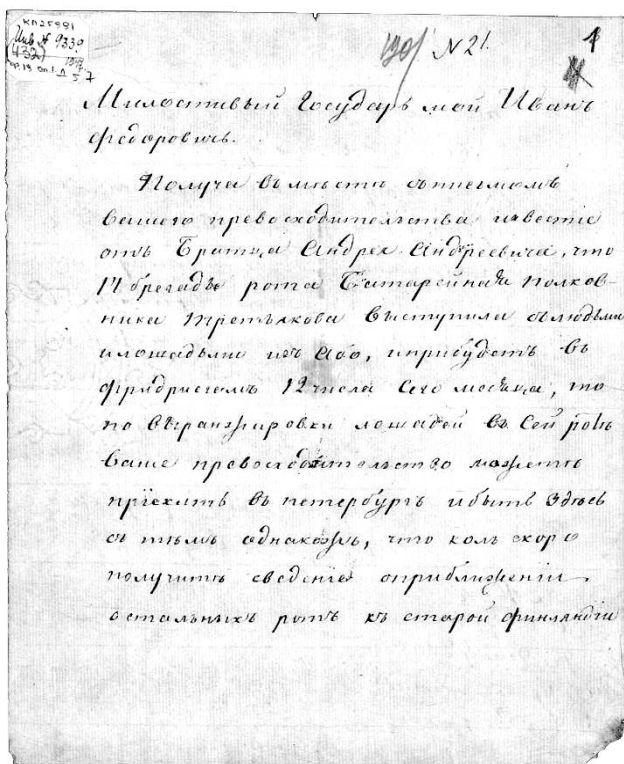 КП25991
Инв № 9339
(432)
190/ № 21.
1
Милостивый Государь мой Иванъ
Федоровичь.
Получа вместе съ писмомъ
вашего превосходительства известiе
отъ Братца Андрея Андреевича, что
14 бригады рота Батарейная Полков-
ника Третьякова выступила съ людьми
и лошадьми изъ Або, и прибудетъ въ
Фридрисгамъ 12 числа сего месяца, то
по выранжировки лошадей въ сей роте
ваше превосходительство можете
прiехать въ петербургъ и быть здесь
съ темъ однакожъ, что коль скоро
получите сведенiе о приближенiи
остальныхъ ротъ къ старой финляндiи